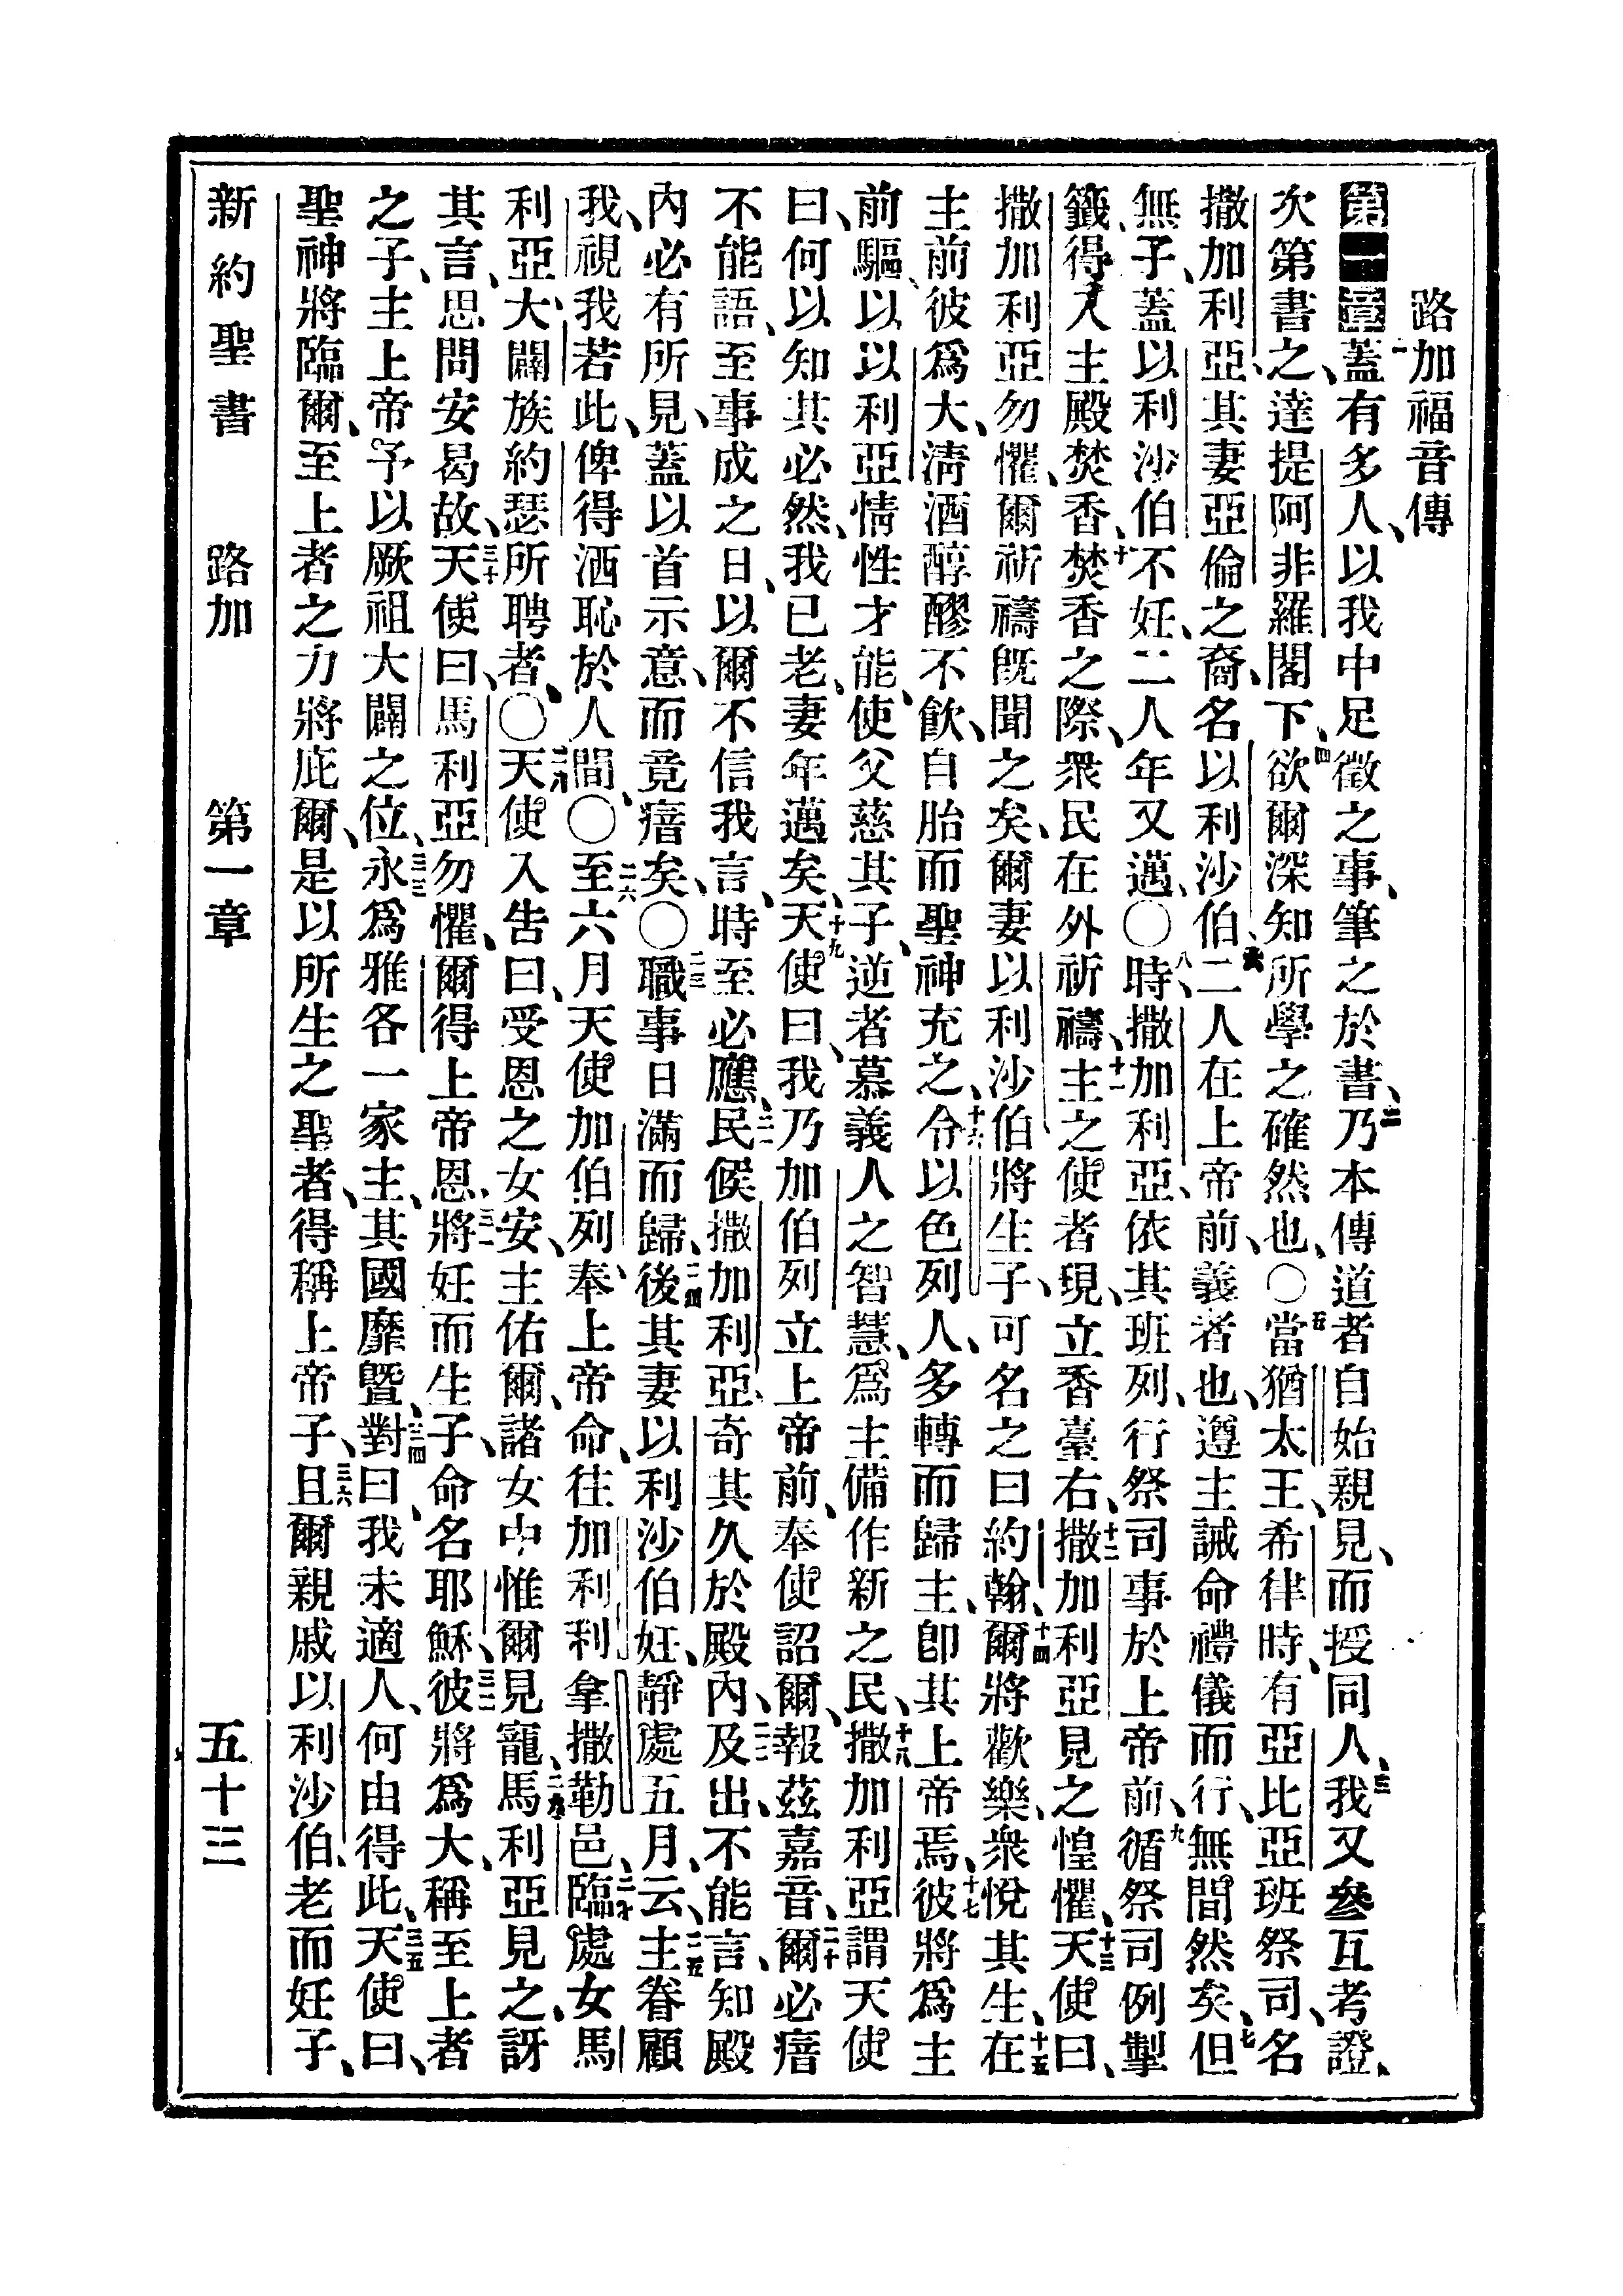 路加福音傳
第一章一蓋有多人、以我中足徵之事、筆之於書、二乃本傳道者自始親見、而授同人、三我又參互考證、
次第書之、達提阿非羅閣下、四欲爾深知所學之確然也、〇五當猶太王、希律時、有亞比亞班祭司、名
撒加利亞、其妻亞倫之裔、名以利沙伯、六二人在上帝前、義者也、遵主誡命禮儀而行、無間然矣、七但
無子、蓋以利沙伯不妊、二人年又邁、〇八時、撒加利亞、依其班列、行祭司事於上帝前、九循祭司例掣
籤、得入主殿焚香、十焚香之際、衆民在外祈禱、十一主之使者現、立香臺右、十二撒加利亞見之惶懼、十三天使曰、
撒加利亞勿懼、爾祈禱旣聞之矣、爾妻以利沙伯將生子、可名之曰約翰、十四爾將歡樂、衆悅其生、十五在
主前彼爲大、淸酒醇醪不飮、自胎而聖神充之、十六令以色列人、多轉而歸主、卽其上帝焉、十七彼將爲主
前驅、以以利亞情性才能、使父慈其子、逆者慕義人之智慧、爲主備作新之民、十八撒加利亞謂天使
曰、何以知其必然、我已老、妻年邁矣、十九天使曰、我乃加伯列立上帝前、奉使詔爾、報茲嘉音、二十爾必瘖
不能語、至事成之日、以爾不信我言、時至必應、二一民候撒加利亞、奇其久於殿內、二二及出、不能言、知殿
內必有所見、蓋以首示意、而竟瘖矣、〇二三職事日滿而歸、二四後其妻以利沙伯妊、靜處五月、云、二五主眷顧
我、視我若此、俾得洒恥於人間、〇二六至六月天使加伯列、奉上帝命、往加利利拿撒勒邑、二七臨處女馬
利亞、大闢族約瑟所聘者、〇二八天使入告曰、受恩之女安、主佑爾、諸女中惟爾見寵、二九馬利亞見之、訝
其言、思問安曷故、三十天使曰、馬利亞勿懼、爾得上帝恩、三一將妊而生子、命名耶穌、三二彼將爲大、稱至上者
之子、主上帝予以厥祖大闢之位、三三永爲雅各一家主、其國靡曁、三四對曰、我未適人、何由得此、三五天使曰、
聖神將臨爾、至上者之力將庇爾、是以所生之聖者、得稱上帝子、三六且爾親戚以利沙伯、老而妊子、
新約聖書　路加　第一章　五十三